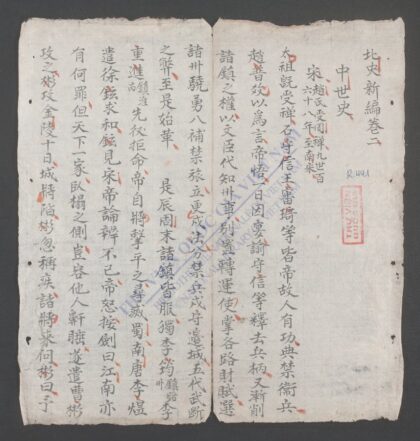 北史新編卷二
中世史
宋 趙氏受周禪九世百六十八年至南宋
太祖既受禪石守信王審琦等皆帝故人有功典禁衛兵
趙普效以爲言帝悟一日因宴諭守信等釋去兵柄又漸削
諸鎮之權以文臣代知州事別置轉運使掌各路財賦選
諸州驍勇入補禁旅立更戍法分禁兵戍守邊城五代武斷
之弊至是始革 是辰周末諸鎮皆服獨李筠 李
重進 先後拒命帝自將擊平之尋滅蜀南唐李煜
遣徐鉉求和鉉見宋帝論辯不已帝怒按劍曰江南亦
有何罪但天下一家臥榻之側豈容他人鼾睡遂遣曹彬
攻之彬攻金陵十日城將陷彬忽稱疾諸將來問彬曰予